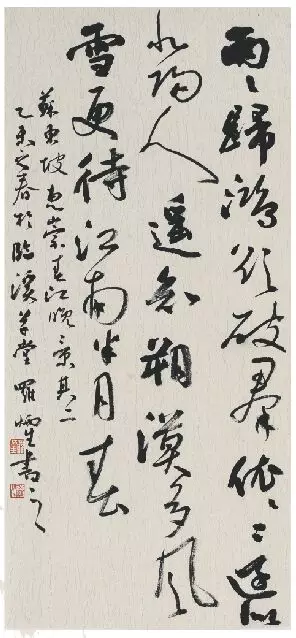 兩〻歸鴻欲破羣依〻還似
北歸人遙知朔漠多風
雪更待江南半月春
蘇東坡惠崇春江晚景其二
乙未之春於臨溪草堂羅書之